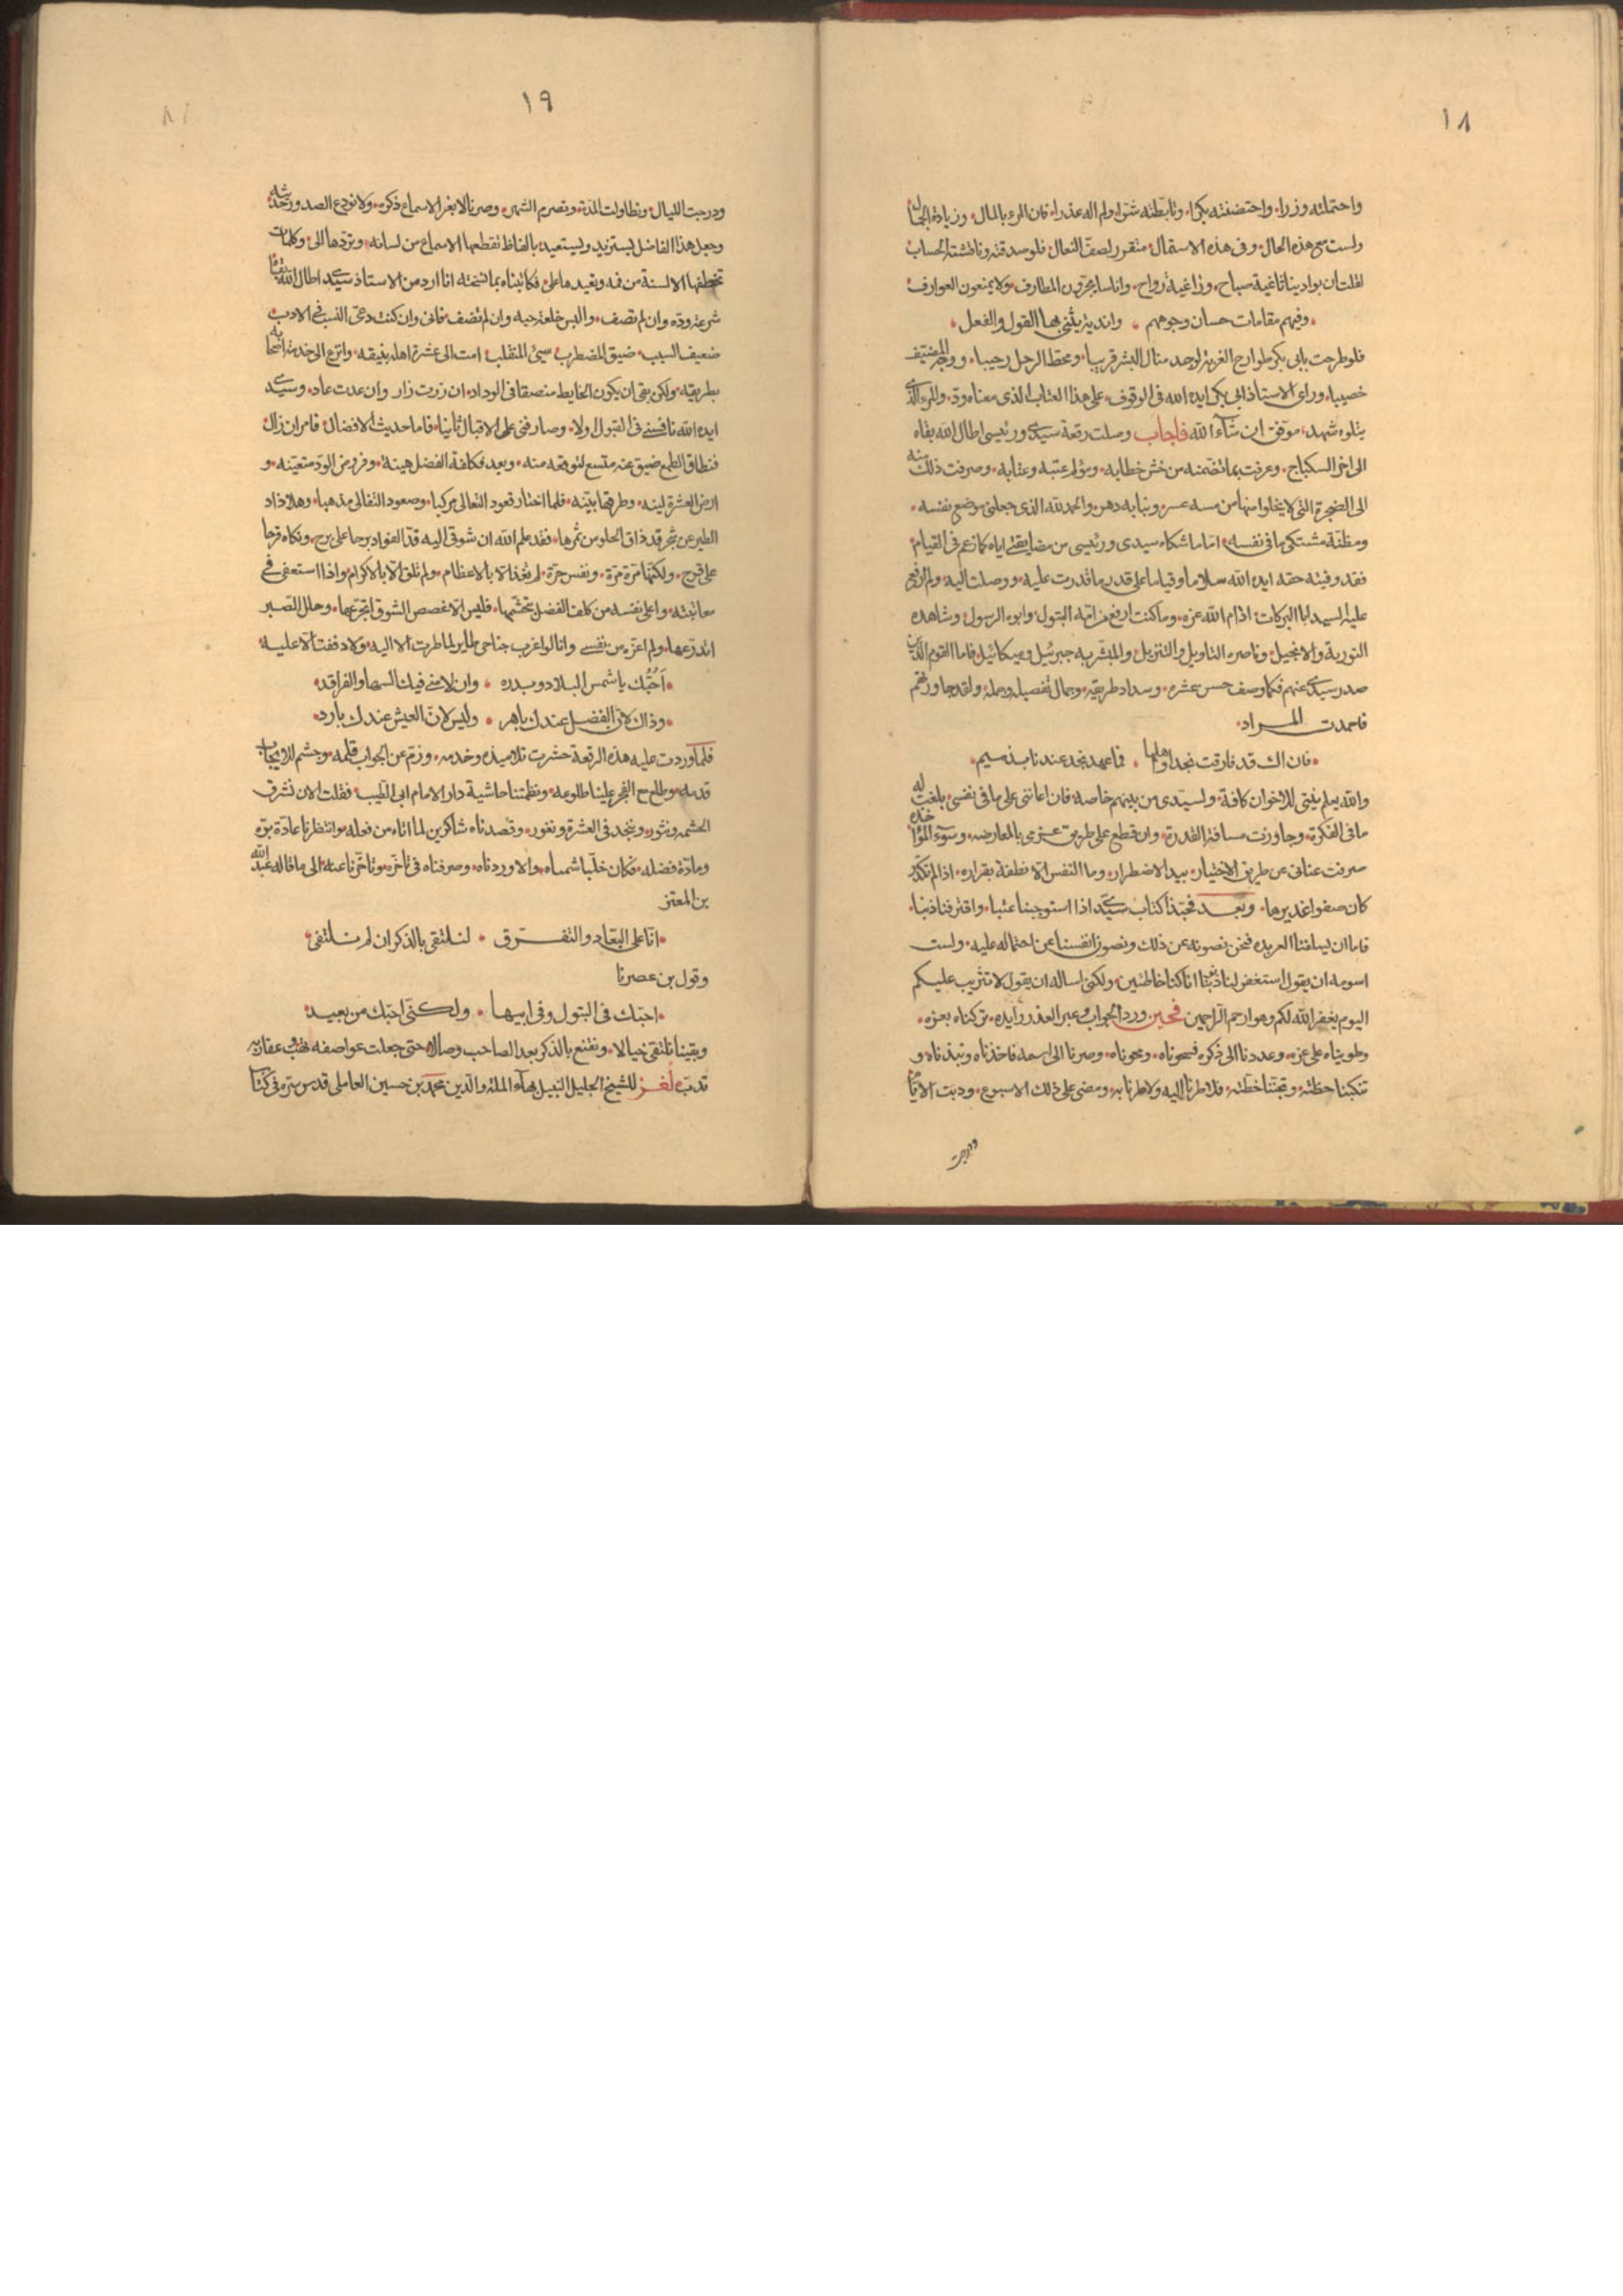 ١٨
واحتملته وزرا، واحتضنته نكرا، وتابطته شرا، ولم اله عذرا، فان المرء بالمال، وزيادة الجمال
ولست مع هذه الحال، وفى هذه الاسمال، متقزر لصف النعال، فلو صدقته وناقشته الحساب
لقلت ان بوادينا ثاغية صباح، وراغية رواح، واناسا يجرون المطارف، ولا يمنعون العوارف
وفيهم مقامات حسان وجوههم ، واندية ينتابها القول والفعل
فلو طرحت بابى بكر طوارح الغربة لوجد منال البشر قريبا، ومحط الرحل رحيبا، ووجه المضيف
خصيبا، وراى الاستاذ ابى بكر ايده الله فى الوقوف على هذا العتاب الذى معناه ود، والمر الذى
يتلوه شهد، موفق ان شاء الله فاجاب وصلت رقعة سيدى ورئيسى اطال الله بقاه
الى اخر السكباج، وعرفت بما تضمنه من خشن خطابه، ومؤلم عتبه وعتابه، وصرفت ذلك منه
الى الضجرة التى لا يخلوا منها من مسه عسر، ونبا به دهر، والحمد لله الذى جعلنى موضع نفسه
ومظنة مشتكى ما فى نفسه، اما ما شكاه سيدى ورئيسى من مضايقتى اياه كما زعم فى القيام
فقد وفيته حقه ايده الله سلاما وقياما على قدر ما قدرت عليه، ووصلت اليه، ولم ارفع
عليه السيد ابا البركات ادام الله عزه، وما كنت ارفع من امه البتول، وابوه الرسول، وشاهده
التورية والانجيل، وناصره التاويل والتنزيل، والمبشر به جبرئيل وميكائيل، فاما القوم الذين
صدر سيدى عنهم فكما وصف حسن عشرة، وسداد طريقة، وجمال تفصيل وجملة، ولقد جاورتهم
فاحمدت المراد
فان اك قد فارقت نجدا واهلها ، فما عهد نجد عندنا بذميم
والله يعلم نيتى للاخوان كافة، ولسيدى من بينهم خاصة، فان اعاننى على ما فى نفسى بلغت له
ما فى الفكرة، وجاوزت مسافة القدرة، وان قطع على طريق عزمى بالمعارضة، وسوء المؤاخذه
صرفت عنانى عن طريق الاختيار، بيد الاضطرار، وما النفس الا نطفة بقرارة، اذا لم تكدر
كان صفوا غديرها، وبعد فحبذا كتاب سيدى اذا استوجبنا عتبا، واقترفنا ذنبا
فاما ان يسلفنا العربده فنحن نصونه عن ذلك ونصون انفسنا عن احتماله عليه، ولست
اسومه ان يقول استغفر لنا ذنوبنا انا كنا خاطئين، ولكن اساله ان يقول لا تثريب عليكم
اليوم يغفر الله لكم وهو ارحم الراحمين فحين ورد الجواب وعبر العذر رايده، تركناه بعره
وطويناه على غره، وعددنا الى ذكره فسحوناه، ومحوناه، وصرنا الى اسمه فاخذناه ونبذناه، و
تنكبنا خطته، وتجنبنا خطته، فلا طرنا اليه ولا طرنا به، ومضى على ذلك الاسبوع، ودبت الايام
ودرجت
١٩
ودرجت الليال، وتطاولت المدة، وتصرم الشهر، وصرنا لا نعير الاسماع ذكره، ولا نودع الصدور حديثه
وجعل هذا الفاضل يستزيد ويستعيد بالفاظ تقطعها الاسماع من لسانه، وتردها الى، وكلمات
تخطفها الالسنة من فمه، وتعيدها على، فكاتبناه بما نسخته انا ارد من الاستاذ سيدى اطال الله بقاه
شرعة وده وان لم تصف، والبس خلعة حبه وان لم تضف، فانى وان كنت دعى النسب فى الادب
ضعيف السبب، ضيق المضطرب، سيئ المنقلب، امت الى عشرة اهله بنيقه، وانزع الى خدمة اصحابه
بطريقه، ولكن بقى ان يكون الخليط منصفا فى الوداد، ان زرت زار وان عدت عاد، وسيدى
ايده الله ناقشنى فى القبول اولا، وصارفنى على الاقبال ثانيا، فاما حديث الافضال، فامر انزال
فنطاق الطمع ضيق عنه متسع لتوقعه منه، وبعد فكلفة الفضل هينة، وفروض الود متعينه، و
ارض العشرة لينه، وطرقها بينه، فلما اختار قعود التعالى مركبا، وصعود التغالى مذهبا، وهلا ذاد
الطير عن شجر قد ذاق الحلو من ثمرها، فقد علم الله ان شوقى اليه قد الفواد برحا على برح، ونكاه قرحا
على قرح، ولكنها مرة مرة، ونفس حرة، لم تغذ الا بالاعظام، ولم تلق الا بالاكرام، واذا استعفى فى
معاتبته، واعفى نفسه من كلف الفضل بتجشمها، فليس الا غصص الشوق اتجرعها، وحلل الصبر
اتدرعها، ولم اعزه من نفسى وانا لو اعرت جناحى طاير لما طرت الا اليه، ولا دففت الا عليه
احبك يا شمس البلاد وبدره ، وان لامنى فيك السها والفراقد
وذاك لان الفضل عندك باهر ، وليس لان العيش عندك بارد
فلما وردت عليه هذه الرقعة حشرت تلاميذه وخدمه، وزم عن الجواب قلمه، وجشم للايجاب
قدمه، وطلع مع الفجر علينا طلوعه، ونظمتنا حاشية دار الامام ابى الطيب، فقلت الان تشرق
الحشمة وتنور، وننجد فى العشرة ونغور، وقصدناه شاكرين لما اتاه من فعله، وانتظرنا عادة بره
ومادة فضله، فكان خلبا شمناه، والا وردناه، وصرفناه فى تاخره وتاخرنا عنه الى ما قاله عبد الله
بن المعتز
انا على البعاد والتفرق ، لنلتقى بالذكر ان لم نلتقى
وقول بن عصرنا
احبك فى البتول وفى ابيها ، ولكنى احبك من بعيد
وبقينا نلتقى خيالا، ونقنع بالذكر بعد الصاحب وصالا حتى جعلت عواصفه تهب وعقاربه
تدب لغز للشيخ الجليل النبيل بهاء الملة والدين محمد بن حسين العاملى قدس سره فى كتاب